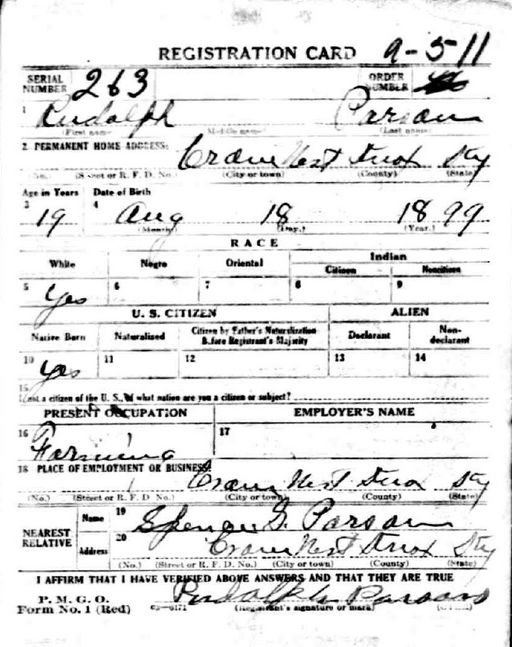 REGISTRATION CARD 9-5-11
SERIAL NUMBER 263 ORDER NUMBER
1 Rudolph Parson
(First name) (Middle name) (Last name)
2 PERMANENT HOME ADDRESS: Crane Nest Knox Ky
(No.) (Street or R. F. D. No.) (City or town) (County) (State)
Age in Years Date of Birth
3 19 4 Aug 18 1899
(Month.) (Day.) (Year.)
RACE
White Negro Oriental Indian
Citizen Noncitizen
5 Yes 6 7 8 9
U. S. CITIZEN ALIEN
Native Born Naturalized Citizen by Father's Naturalization Before Registrant's Majority Declarant Non-declarant
10 Yes 11 12 13 14
15 If not a citizen of the U. S., of what nation are you a citizen or subject?
PRESENT OCCUPATION EMPLOYER'S NAME
16 Farming 17
18 PLACE OF EMPLOYMENT OR BUSINESS:
Crane Nest Knox Ky
(No.) (Street or R. F. D. No.) (City or town) (County) (State)
NEAREST RELATIVE Name 19 Spencer G. Parson
Address 20 Crane Nest Knox Ky
(No.) (Street or R. F. D. No.) (City or town) (County) (State)
I AFFIRM THAT I HAVE VERIFIED ABOVE ANSWERS AND THAT THEY ARE TRUE
P. M. G. O.
Form No. 1 (Red) 03-6171 Rudolph Parsons
(Registrant's signature or mark) (OVER)